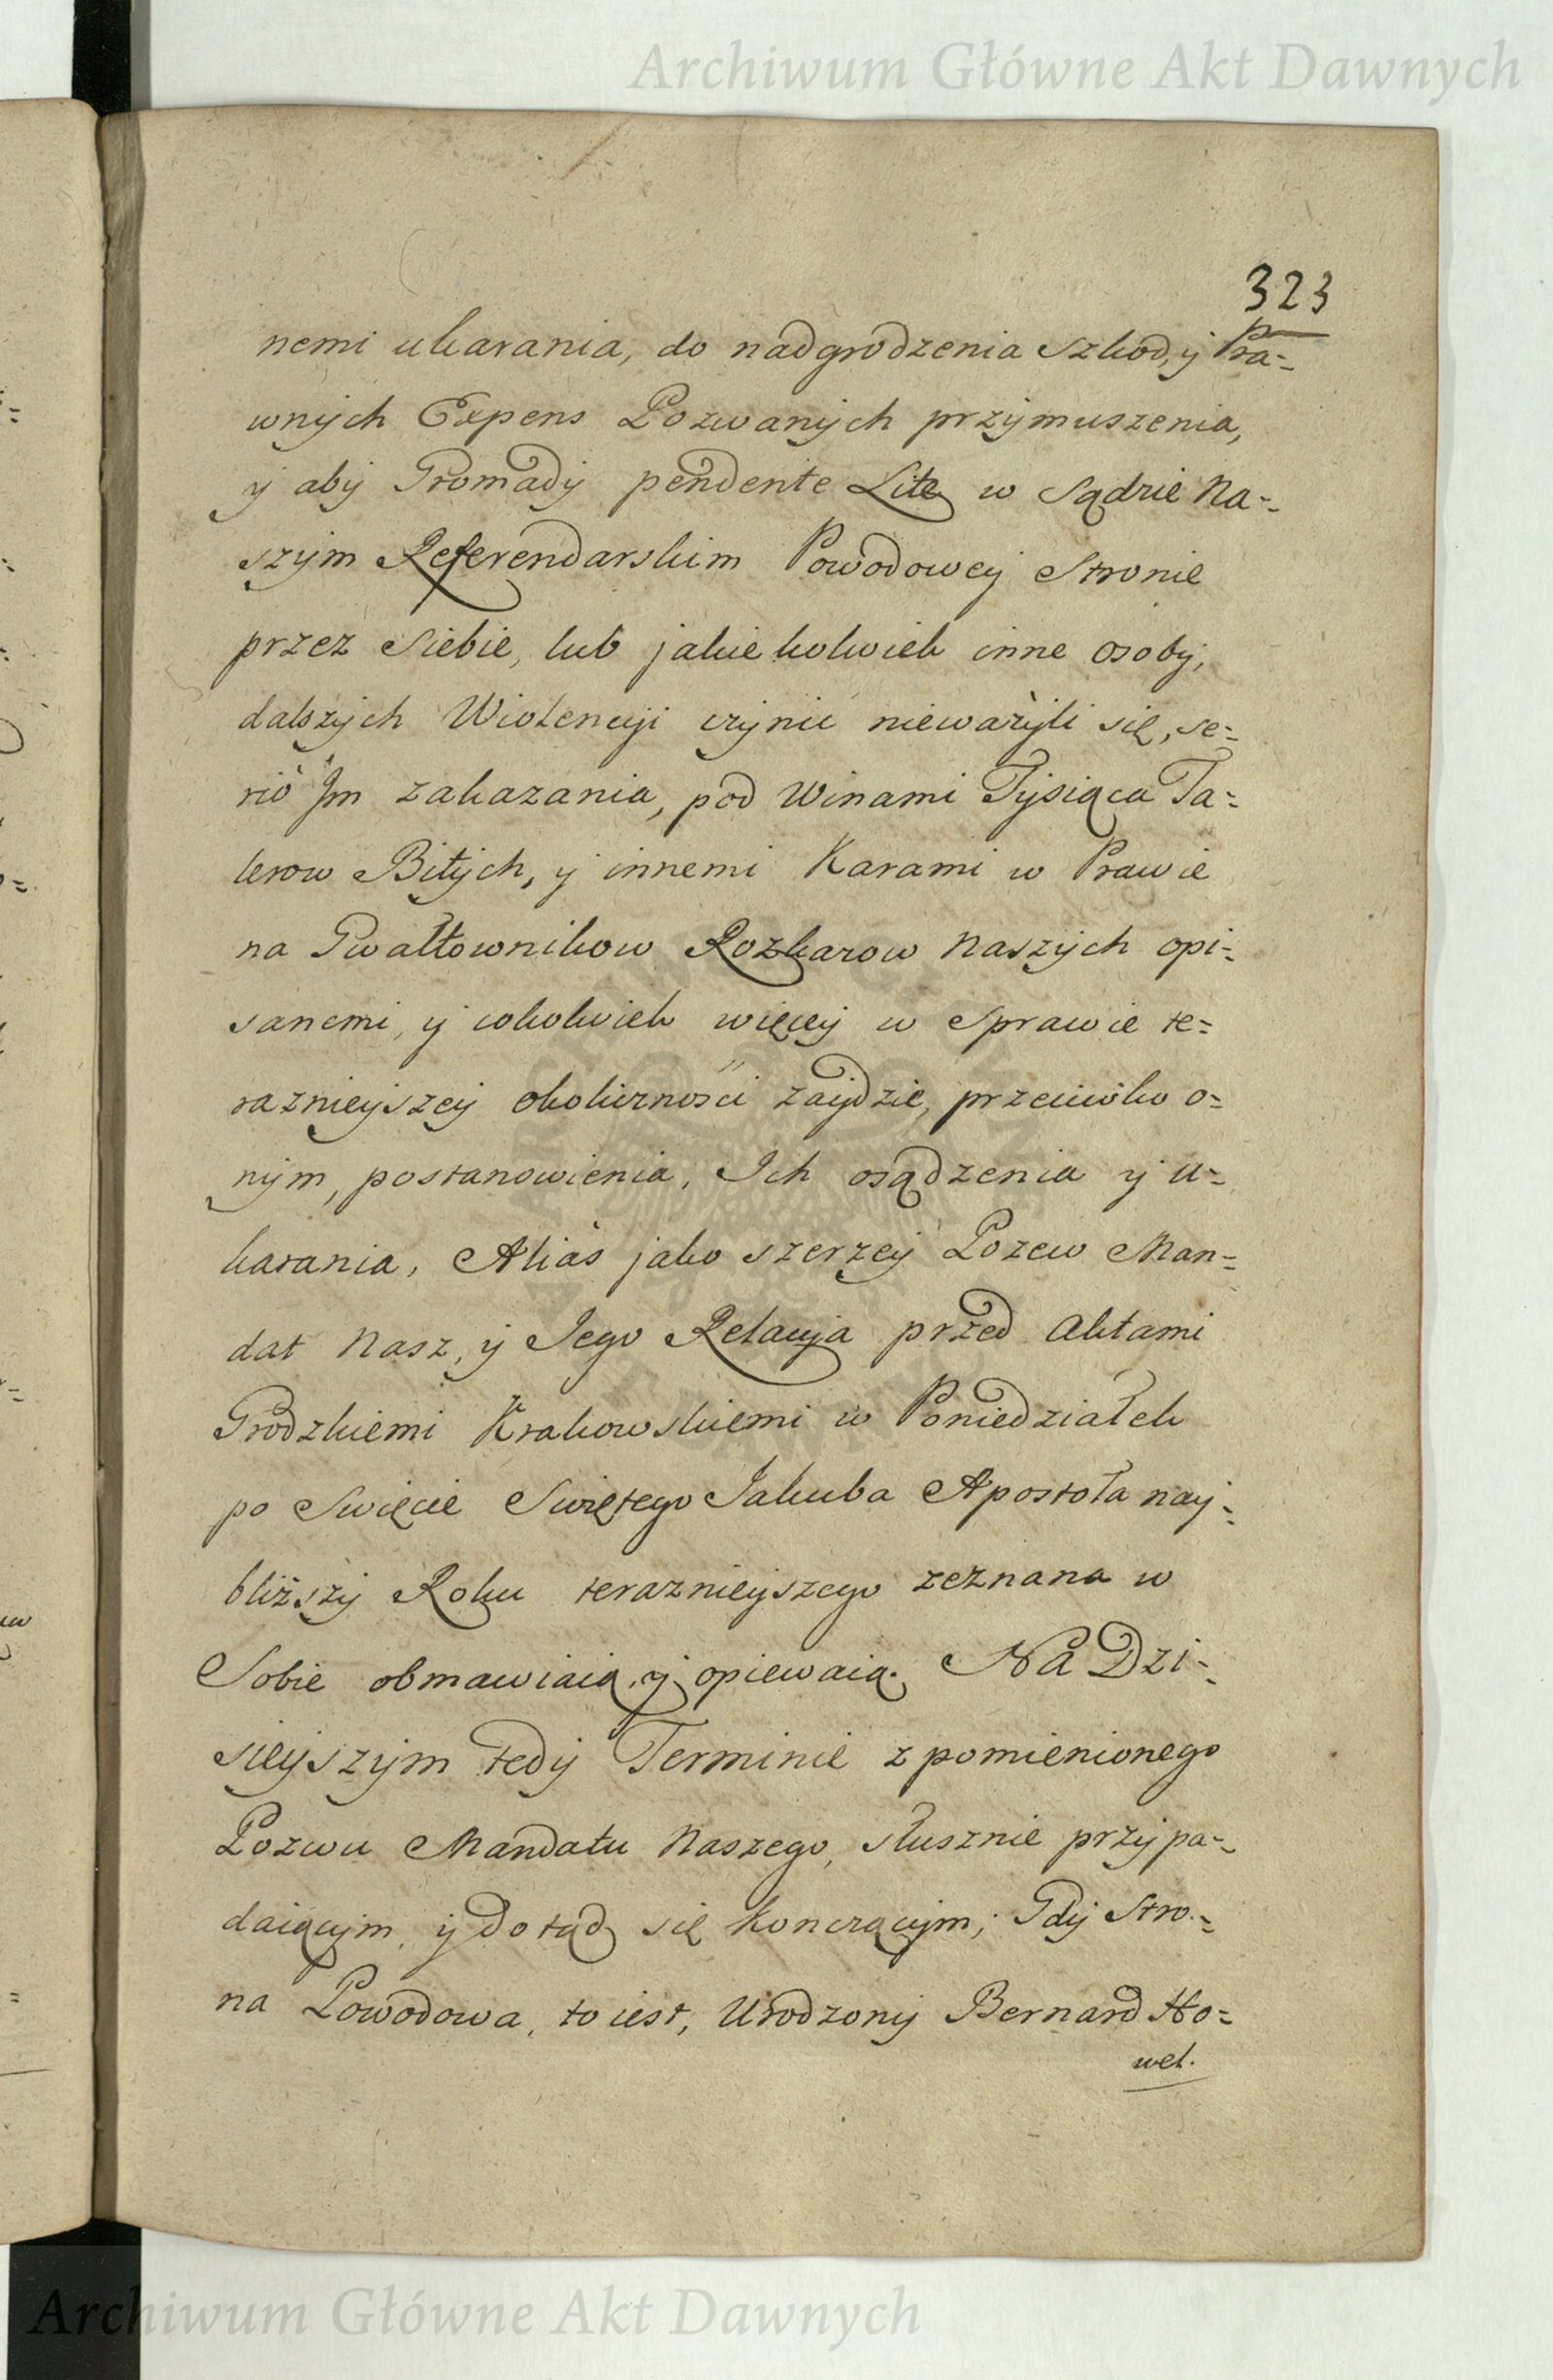 Archiwum Główne Akt Dawnych
323
nemi ukarania, do nadgrodzenia szkod, y Pra=
wnych Expens Pozwanych przymuszenia,
y aby Gromady pendente Lite w Sądzie Na=
szym Referendarskim Powodowey Stronie
przez siebie, lub jakiekolwiek inne osoby,
dalszych Wiolencyi czynić nieważyli się, se=
rió Jm zakazania, pod Winami Tysiąca Ta=
lerow Bitych, y innemi Karami w Prawie
na Gwałtownikow Rozkazow Naszych opi=
sanemi, y cokolwiek więcey w Sprawie te=
raznieyszey okoliczności zaydzie, przeciwko o=
nym, postanowienia, Ich osądzenia y u=
karania, Aliàs jako szerzey Pozew Man=
dat Nasz, y Jego Relacyja przed Aktami
Grodzkiemi Krakowskiemi w Poniedziałek
po Swięcie Swiętego Jakuba Apostoła nay=
bliższy Roku terazniejszego zeznana w
Sobie obmawiaią, y opiewaią. NA Dzi=
sieyszym tedy Terminie z pomienionego
Pozwu Mandatu Naszego, słusznie przypa=
daiącym, y dotąd się kończącym; Gdy Stro=
na Powodowa, to iest, Urodzony Bernard Ho=
wel.
Archiwum Główne Akt Dawnych